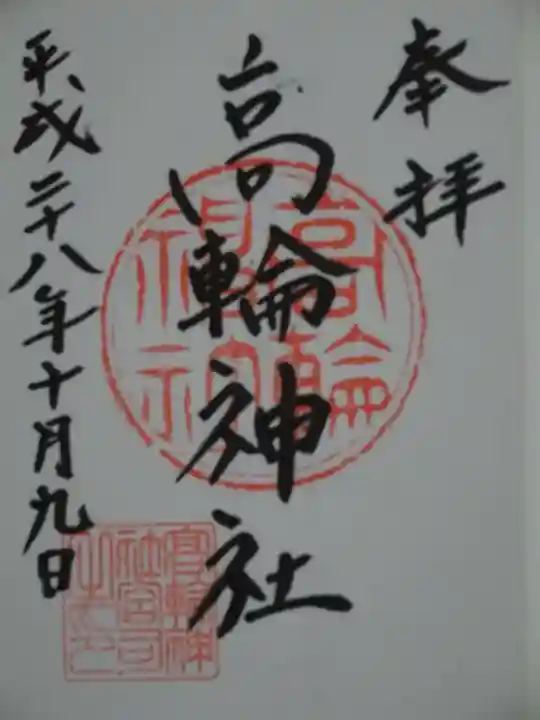 奉拝
高輪神社
平成二十八年十月九日
高輪神社
高輪神社宮司之印